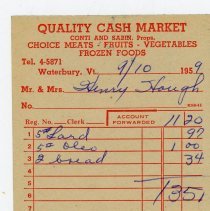 QUALITY CASH MARKET
CONTI AND SABIN, Props.
CHOICE MEATS - FRUITS - VEGETABLES
FROZEN FOODS
Tel. 4-5871
Waterbury, Vt. 9/10 1959
Mr. & Mrs. Henry Hough
Reg. No. Clerk ACCOUNT FORWARDED 11 20
1 5# Lard 97
2 5# Oleo 1 00
3 2 bread 34
4
5
6